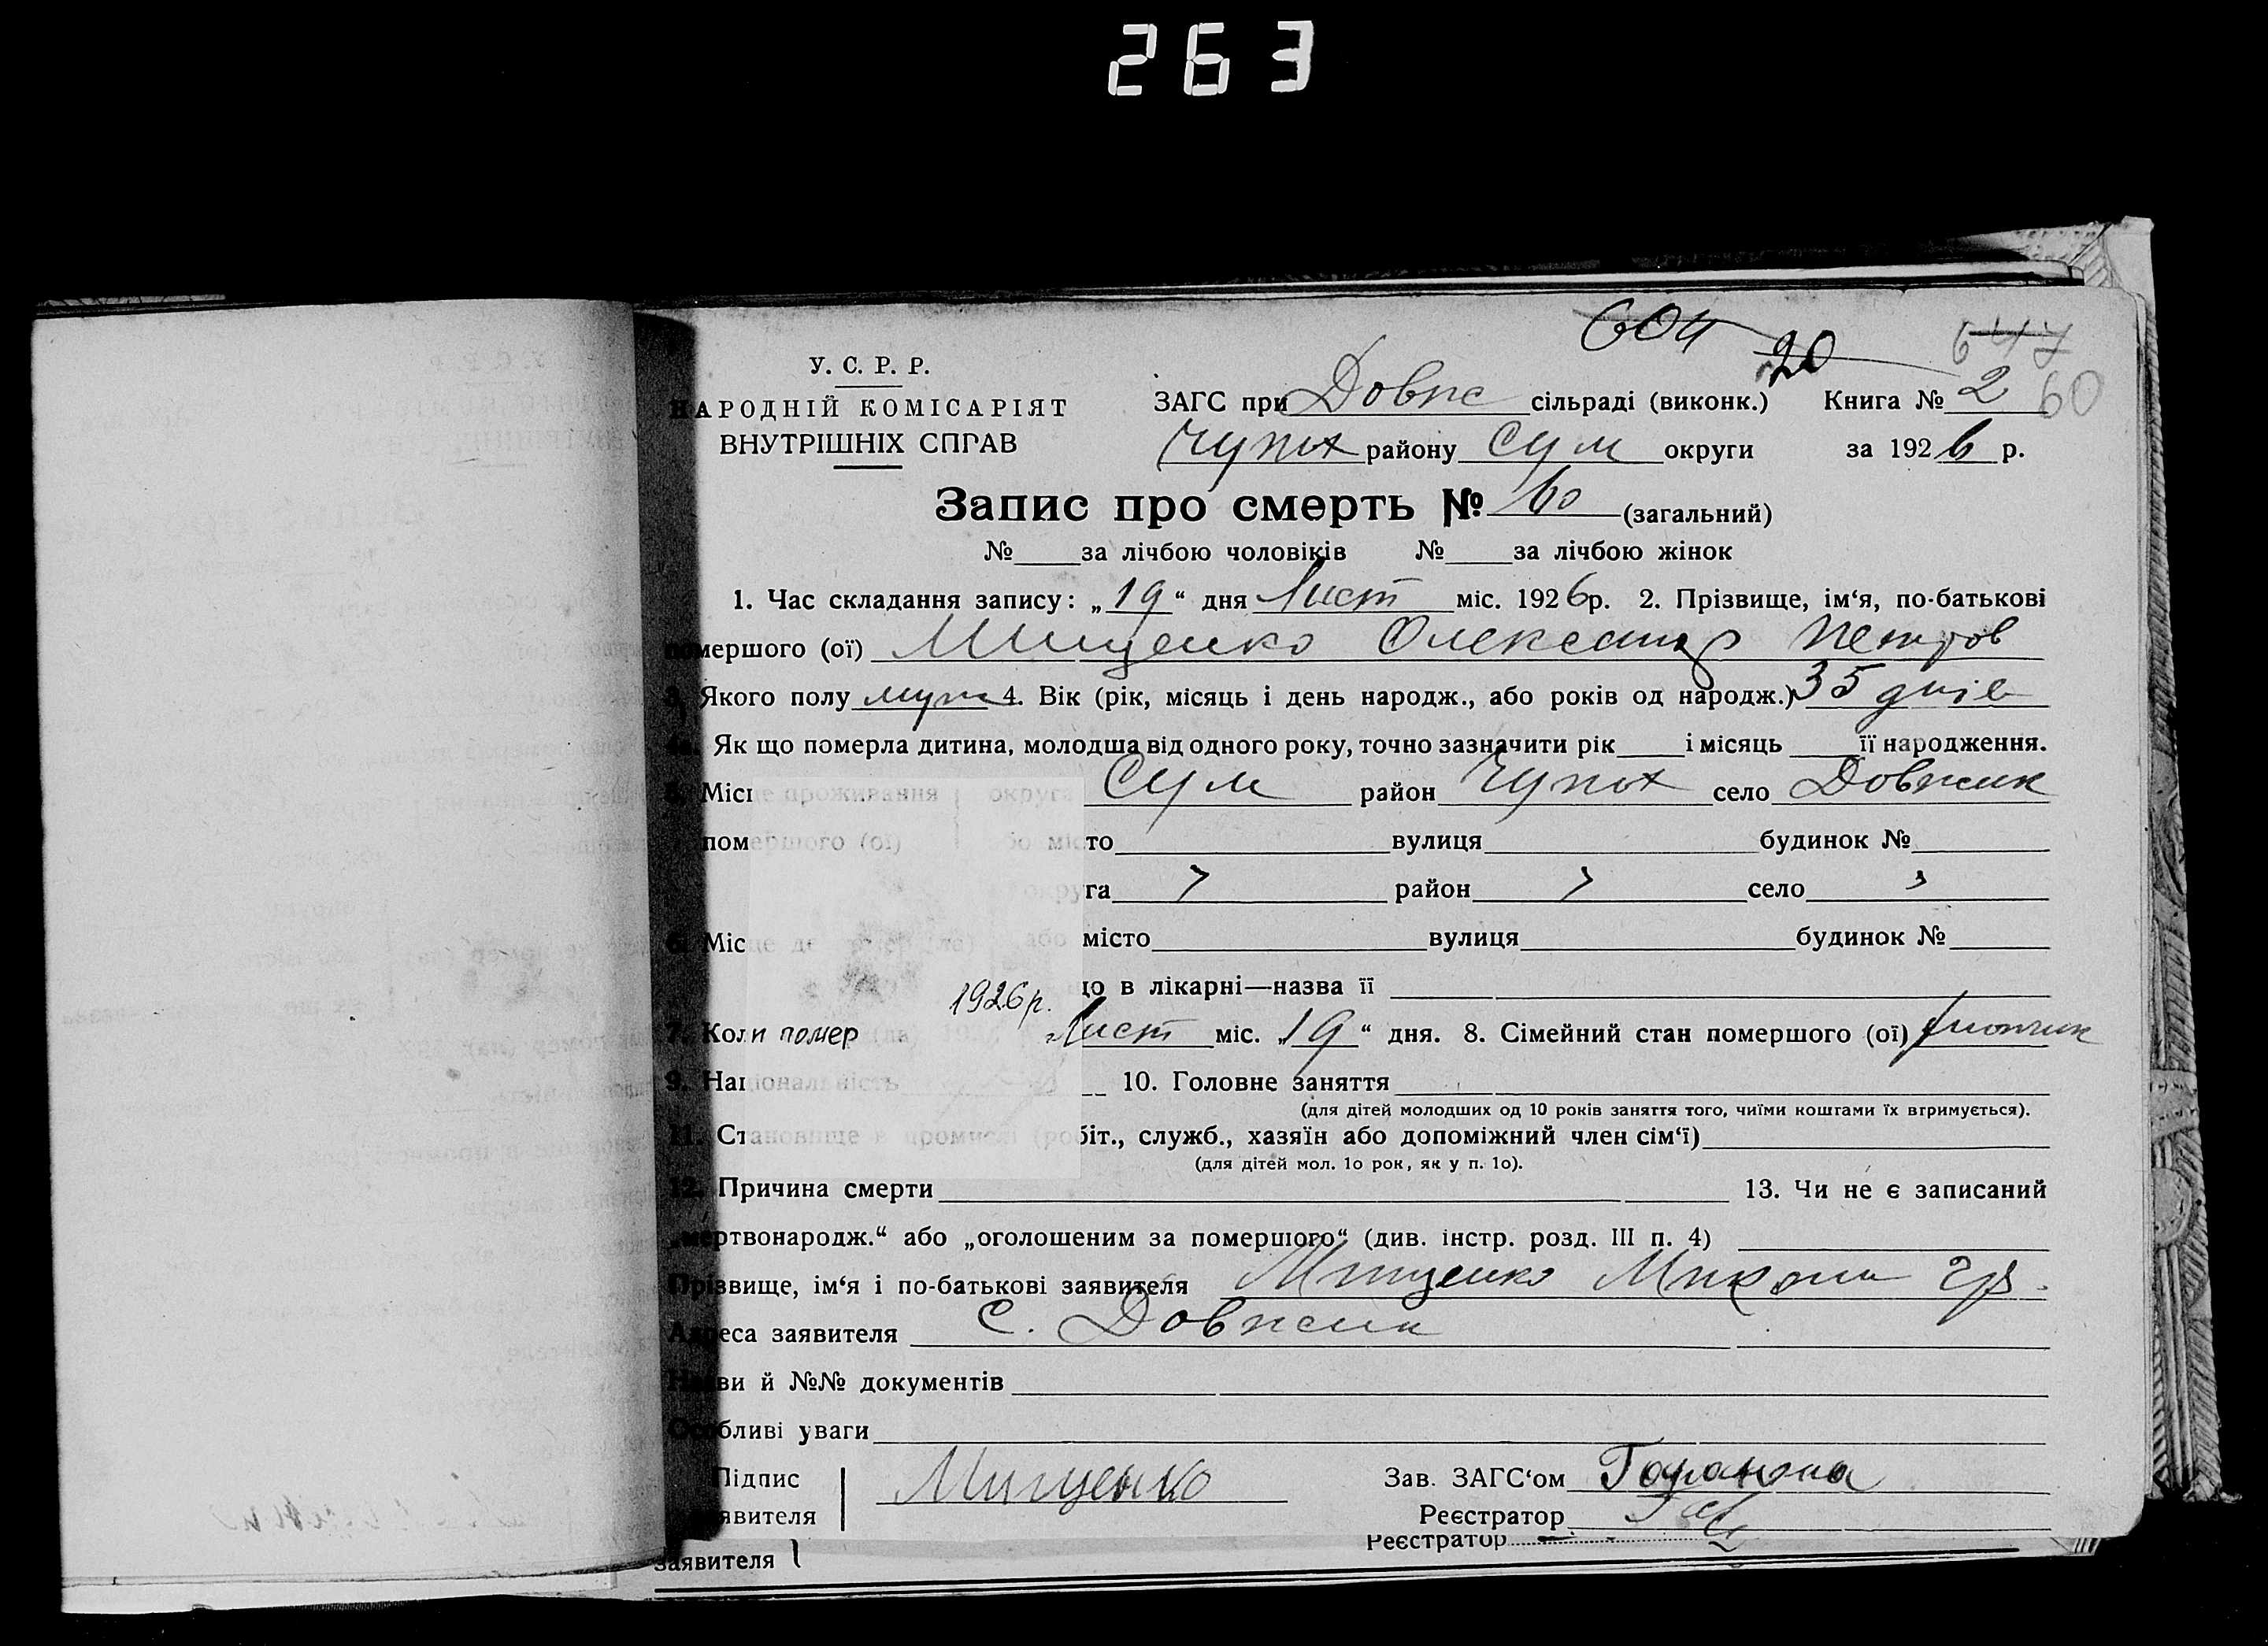 263
604
20
647
60
У. С. Р. Р.
НАРОДНІЙ КОМІСАРІЯТ
ВНУТРІШНІХ СПРАВ
ЗАГС при Довж сільраді (виконк.) Книга № 2
району Сум округи за 1926 р.
Запис про смерть № 60 (загальний)
№ за лічбою чоловіків № за лічбою жінок
1. Час складання запису: „19“ дня Лист міс. 1926р. 2. Прізвище, ім‘я, по-батькові
помершого (ої) Мищенко Олександр Петров
3. Якого полу муж 4. Вік (рік, місяць і день народж., або років од народж.) 35 днів
4а. Як що померла дитина, молодша від одного року, точно зазначити рік і місяць її народження.
5. Місце проживання округа Сум район село Довжик
помершого (ої) або місто вулиця будинок №
округа район село
6. Місце де помер (ла) або місто вулиця будинок №
що в лікарні—назва її
1926р.
7. Коли помер Лист міс. „19“ дня. 8. Сімейний стан помершого (ої)
9. Національність 10. Головне заняття
(для дітей молодших од 10 років заняття того, чиїми коштами їх втримується).
11. Становище в промислі (робіт., служб., хазяїн або допоміжний член сім‘ї)
(для дітей мол. 1о рок, як у п. 1о).
12. Причина смерти 13. Чи не є записаний
„мертвонародж.“ або „оголошеним за помершого“ (див. інстр. розд. III п. 4)
Прізвище, ім‘я і по-батькові заявителя Мищенко Микола Гр.
Адреса заявителя С. Довжик
Назви й №№ документів
Особливі уваги
Підпис заявителя Мищенко Зав. ЗАГС‘ом
Реєстратор
Реєстратор
заявителя